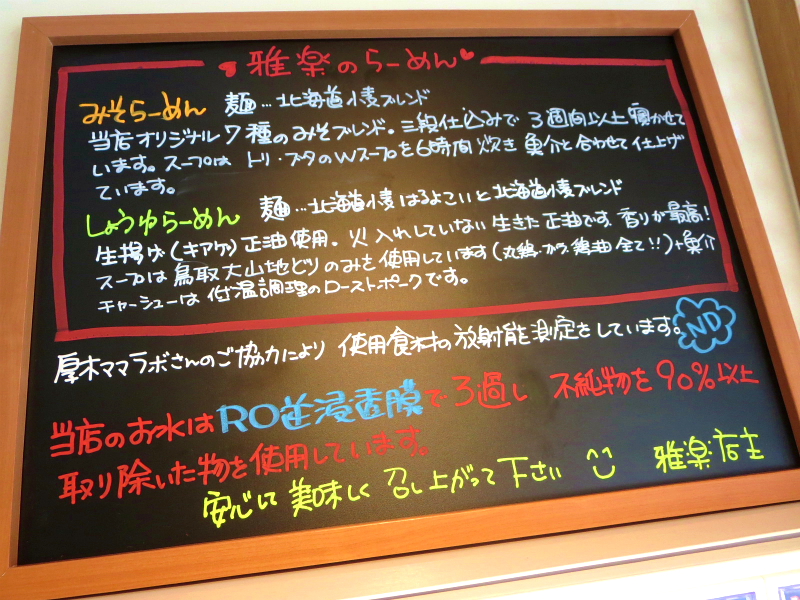 雅楽のらーめん
みそらーめん 麺…北海道小麦ブレンド
当店オリジナル7種のみそブレンド。三段仕込みで3週間以上寝かせて
います。スープは トリ・ブタのWスープを6時間炊き 魚介と合わせて仕上げ
ています。
しょうゆらーめん 麺…北海道小麦はるよこいと北海道小麦ブレンド
生揚げ(キアゲ)正油使用。火入れしていない生きた正油です。香りが最高!
スープは鳥取大山地どりのみを使用しています(丸鶏・ガラ・鶏油全て!!)+魚介
チャーシューは低温調理のローストポークです。
厚木ママラボさんのご協力により 使用食材の放射能測定をしています。ND
当店のお水はRO逆浸透膜で3過し 不純物を90%以上
取り除いた物を使用しています。
安心して美味しく召し上がって下さい 雅楽店主